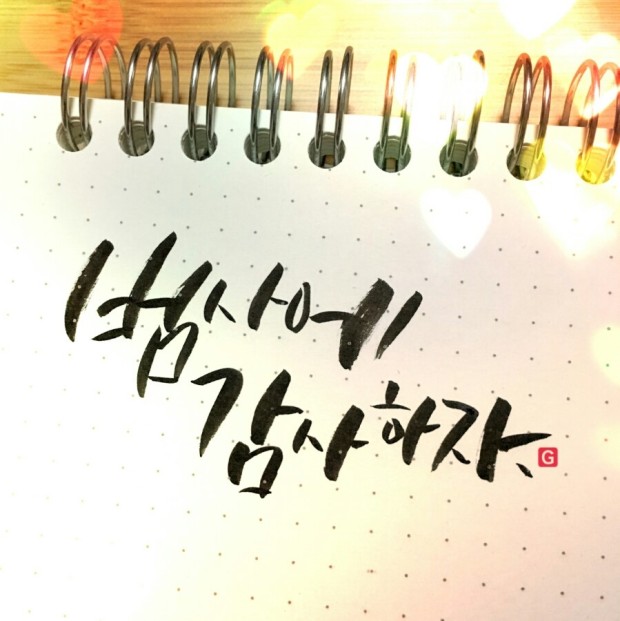 범사에
감사하자.
G